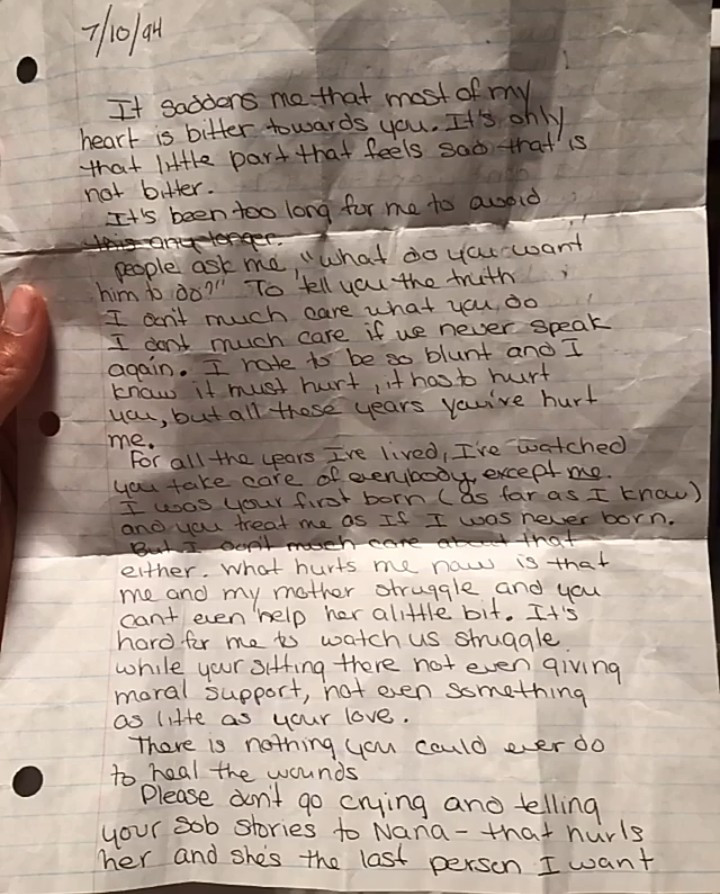 7/10/94
It saddens me that most of my
heart is bitter towards you. It's only
that little part that feels sad that is
not bitter.
It's been too long for me to avoid
this any longer.
people ask me, "what do you want
him to do?" To tell you the truth
I don't much care what you do
I dont much care if we never speak
again. I hate to be so blunt and I
know it must hurt, it has to hurt
you, but all these years you've hurt
me.
For all the years I've lived, I've watched
you take care of everybody except me.
I was your first born (as far as I know)
and you treat me as If I was never born.
But I don't much care about that
either. What hurts me now is that
me and my mother struggle and you
cant even help her alittle bit. It's
hard for me to watch us struggle
while your sitting there not even giving
moral support, not even something
as litte as your love.
There is nothing you could ever do
to heal the wounds
Please don't go crying and telling
your sob stories to Nana - that hurts
her and she's the last person I want